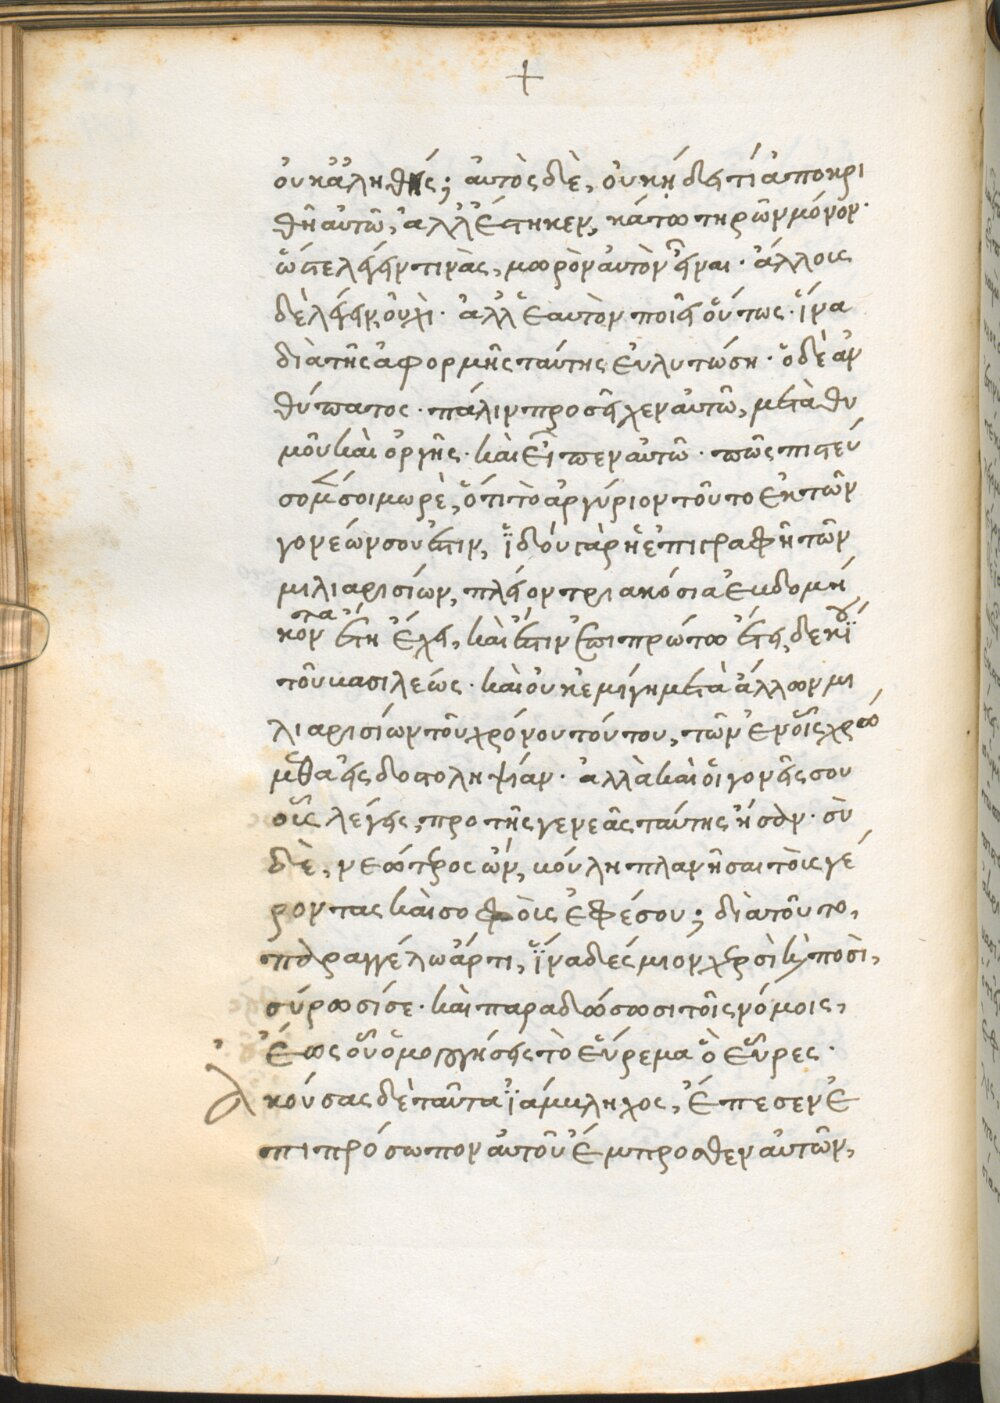 +
οὐκ ἀληθής; αὐτὸς δὲ, οὐκ ἤδει τί ἀποκρι
θῆ αὐτῶ, ἀλλ' ἔστηκεν, κάτω τηρῶν μόνον·
ὥστε λέγειν τινὰς, μωρὸν αὐτὸν εἶναι· ἄλλοις
δὲ λέγειν, οὐχὶ· ἀλλ' ἑαυτὸν ποιεῖ οὕτως· ἵνα
διὰ τῆς ἀφορμῆς ταύτης εὐλυτώση· ὁ δὲ ἀν
θύπατος· πάλιν προσεῖχεν αὐτῶ, μετὰ θυ
μοῦ καὶ ὀργῆς· καὶ εἶπεν αὐτῶ· πῶς πιστεύ
σομέν σοι μωρὲ, ὅτι τὸ ἀργύριον τοῦτο ἐκ τῶν
γονέων σου ἐστιν, ἰδού γὰρ ἡ ἐπιγραφὴ τῶν
μιλιαρισίων, πλέον τριακόσια ἑβδομή
κοντα ἔτη ἔχει, καὶ ἔστιν ἐπι πρώτω ἔτει, δεκίου
τοῦ βασιλεώς· καὶ οὐκ ἐμίγη μετὰ ἄλλων μι
λιαρισίων τοῦ χρόνου τούτου, τῶν ἐν οἷς χρώ
μεθα εἰς δοσοληψίαν· ἀλλὰ καὶ οἱ γονεῖς σου
οὓς λέγεις, προ τῆς γενεᾶς ταύτης ἦσαν· σὺ
δὲ, νεώτερος ὢν, βούλη πλανῆσαι τοὺς γέ
ροντας καὶ σοφοὺς ἐφέσου; διὰ τοῦτο,
παραγγέλω ἄρτι, ἵνα δεσμιον χερσὶ καὶ ποσὶ,
σύρωσί σε· καὶ παραδώσωσι τοῖς νόμοις,
ἕως οὗ ὁμολογήσεις τὸ εὕρεμα ὃ εὗρες·
Ἀκούσας δὲ ταῦτα ἰάμβληχος, ἔπεσεν ἐ
πι πρόσωπον αὐτοῦ ἔμπροσθεν αὐτῶν,